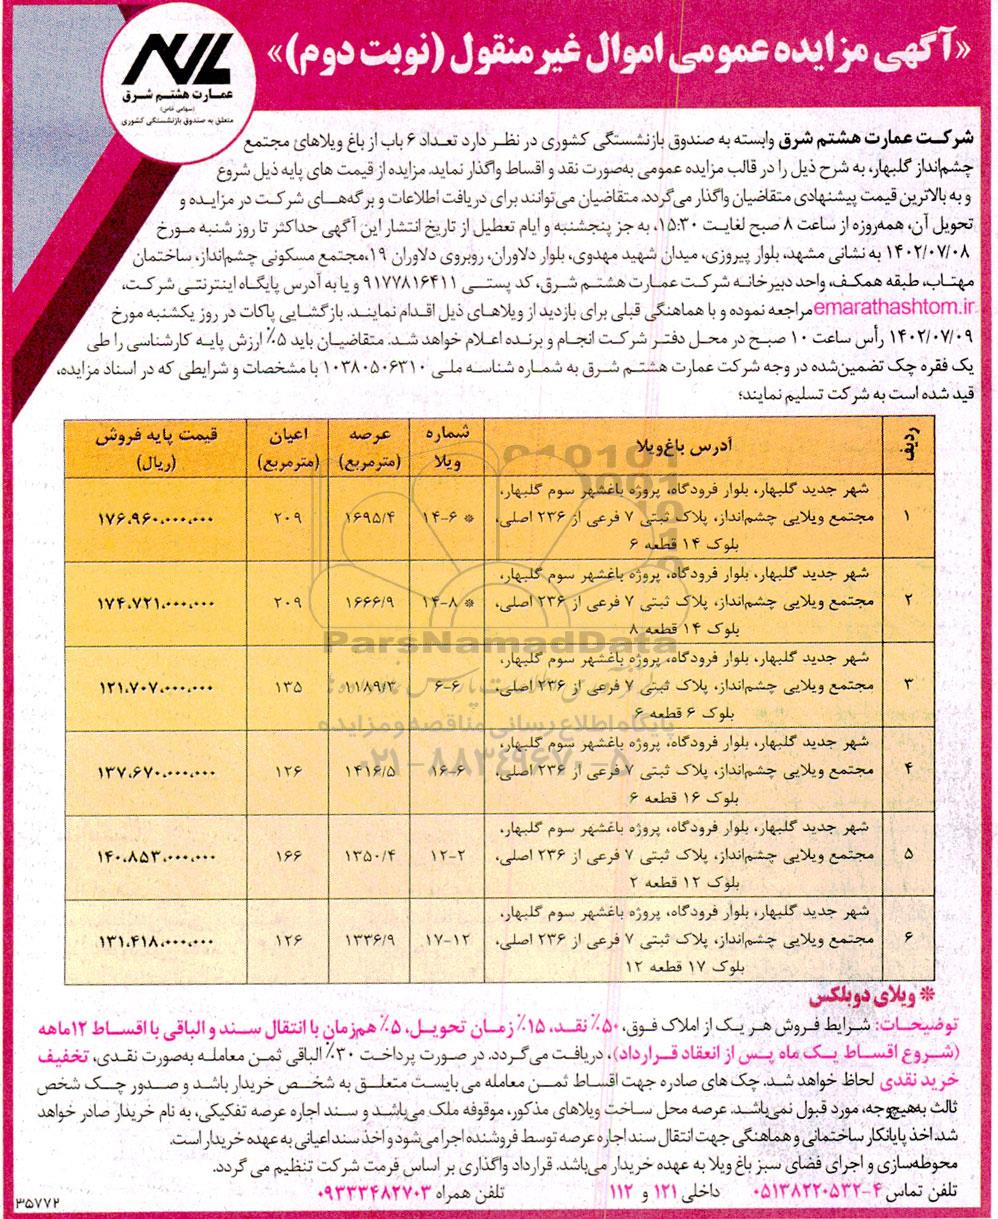 «آگهی مزایده عمومی اموال غیر منقول (نوبت دوم)»
عمارت هشتم شرق
(سهامی خاص)
متعلق به صندوق بازنشستگی کشوری
شرکت عمارت هشتم شرق وابسته به صندوق بازنشستگی کشوری در نظر دارد تعداد ۶ باب از باغ ویلاهای مجتمع
چشم‌انداز گلبهار، به شرح ذیل را در قالب مزایده عمومی به‌صورت نقد و اقساط واگذار نماید. مزایده از قیمت های پایه ذیل شروع
و به بالاترین قیمت پیشنهادی متقاضیان واگذار می‌گردد. متقاضیان می‌توانند برای دریافت اطلاعات و برگه‌های شرکت در مزایده و
تحویل آن، همه‌روزه از ساعت ۸ صبح لغایت ۱۵:۳۰، به جز پنجشنبه و ایام تعطیل از تاریخ انتشار این آگهی حداکثر تا روز شنبه مورخ
۱۴۰۲/۰۷/۰۸ به نشانی مشهد، بلوار پیروزی، میدان شهید مهدوی، بلوار دلاوران، روبروی دلاوران ۱۹،مجتمع مسکونی چشم‌انداز، ساختمان
مهتاب، طبقه همکف، واحد دبیرخانه شرکت عمارت هشتم شرق، کد پستی ۹۱۷۷۸۱۶۴۱۱ و یا به آدرس پایگاه اینترنتی شرکت،
emarathashtom.ir مراجعه نموده و با هماهنگی قبلی برای بازدید از ویلاهای ذیل اقدام نمایند. بازگشایی پاکات در روز یکشنبه مورخ
۱۴۰۲/۰۷/۰۹ رأس ساعت ۱۰ صبح در محل دفتر شرکت انجام و برنده اعلام خواهد شد. متقاضیان باید ۵٪ ارزش پایه کارشناسی را طی
یک فقره چک تضمین‌شده در وجه شرکت عمارت هشتم شرق به شماره شناسه ملی ۱۰۳۸۰۵۰۶۳۱۰ با مشخصات و شرایطی که در اسناد مزایده،
قید شده است به شرکت تسلیم نمایند؛
ردیف آدرس باغ‌ویلا شماره ویلا عرصه (مترمربع) اعیان (مترمربع) قیمت پایه فروش (ریال)
شهر جدید گلبهار، بلوار فرودگاه، پروژه باغشهر سوم گلبهار،
۱ مجتمع ویلایی چشم‌انداز، پلاک ثبتی ۷ فرعی از ۲۳۶ اصلی، * ۱۴-۶ ۱۶۹۵/۴ ۲۰۹ ۱۷۶،۹۶۰،۰۰۰،۰۰۰
بلوک ۱۴ قطعه ۶
شهر جدید گلبهار، بلوار فرودگاه، پروژه باغشهر سوم گلبهار،
۲ مجتمع ویلایی چشم‌انداز، پلاک ثبتی ۷ فرعی از ۲۳۶ اصلی، * ۱۴-۸ ۱۶۶۶/۹ ۲۰۹ ۱۷۴،۷۲۱،۰۰۰،۰۰۰
بلوک ۱۴ قطعه ۸
شهر جدید گلبهار، بلوار فرودگاه، پروژه باغشهر سوم گلبهار،
۳ مجتمع ویلایی چشم‌انداز، پلاک ثبتی ۷ فرعی از ۲۳۶ اصلی، ۶-۶ ۱۱۸۹/۳ ۱۳۵ ۱۲۱،۷۰۷،۰۰۰،۰۰۰
بلوک ۶ قطعه ۶
شهر جدید گلبهار، بلوار فرودگاه، پروژه باغشهر سوم گلبهار،
۴ مجتمع ویلایی چشم‌انداز، پلاک ثبتی ۷ فرعی از ۲۳۶ اصلی، ۱۶-۶ ۱۴۱۶/۵ ۱۲۶ ۱۳۷،۶۷۰،۰۰۰،۰۰۰
بلوک ۱۶ قطعه ۶
شهر جدید گلبهار، بلوار فرودگاه، پروژه باغشهر سوم گلبهار،
۵ مجتمع ویلایی چشم‌انداز، پلاک ثبتی ۷ فرعی از ۲۳۶ اصلی، ۱۲-۲ ۱۳۵۰/۴ ۱۶۶ ۱۴۰،۸۵۳،۰۰۰،۰۰۰
بلوک ۱۲ قطعه ۲
شهر جدید گلبهار، بلوار فرودگاه، پروژه باغشهر سوم گلبهار،
۶ مجتمع ویلایی چشم‌انداز، پلاک ثبتی ۷ فرعی از ۲۳۶ اصلی، ۱۷-۱۲ ۱۳۳۶/۹ ۱۲۶ ۱۳۱،۴۱۸،۰۰۰،۰۰۰
بلوک ۱۷ قطعه ۱۲
ParsNamadData
پایگاه اطلاع رسانی مناقصه و مزایده
۰۲۱-۸۸۳۴۹۶۷۰-۵
* ویلای دوبلکس
توضیحات: شرایط فروش هر یک از املاک فوق، ۵۰٪ نقد، ۱۵٪ زمان تحویل، ۵٪ هم‌زمان با انتقال سند و الباقی با اقساط ۱۲ماهه
(شروع اقساط یک ماه پس از انعقاد قرارداد)، دریافت می‌گردد. در صورت پرداخت ۳۰٪ الباقی ثمن معامله به‌صورت نقدی، تخفیف
خرید نقدی لحاظ خواهد شد. چک های صادره جهت اقساط ثمن معامله می بایست متعلق به شخص خریدار باشد و صدور چک شخص
ثالث به‌هیچ‌وجه، مورد قبول نمی‌باشد. عرصه محل ساخت ویلاهای مذکور، موقوفه ملک می‌باشد و سند اجاره عرصه تفکیکی، به نام خریدار صادر خواهد
شد. اخذ پایانکار ساختمانی و هماهنگی جهت انتقال سند اجاره عرصه توسط فروشنده اجرا می‌شود و اخذ سند اعیانی به عهده خریدار است.
محوطه‌سازی و اجرای فضای سبز باغ ویلا به عهده خریدار می‌باشد. قرارداد واگذاری بر اساس فرمت شرکت تنظیم می گردد.
تلفن تماس ۴-۰۵۱۳۸۲۲۰۵۳۲ داخلی ۱۲۱ و ۱۱۲ تلفن همراه ۰۹۳۳۳۴۸۲۷۰۳
۳۵۷۷۲